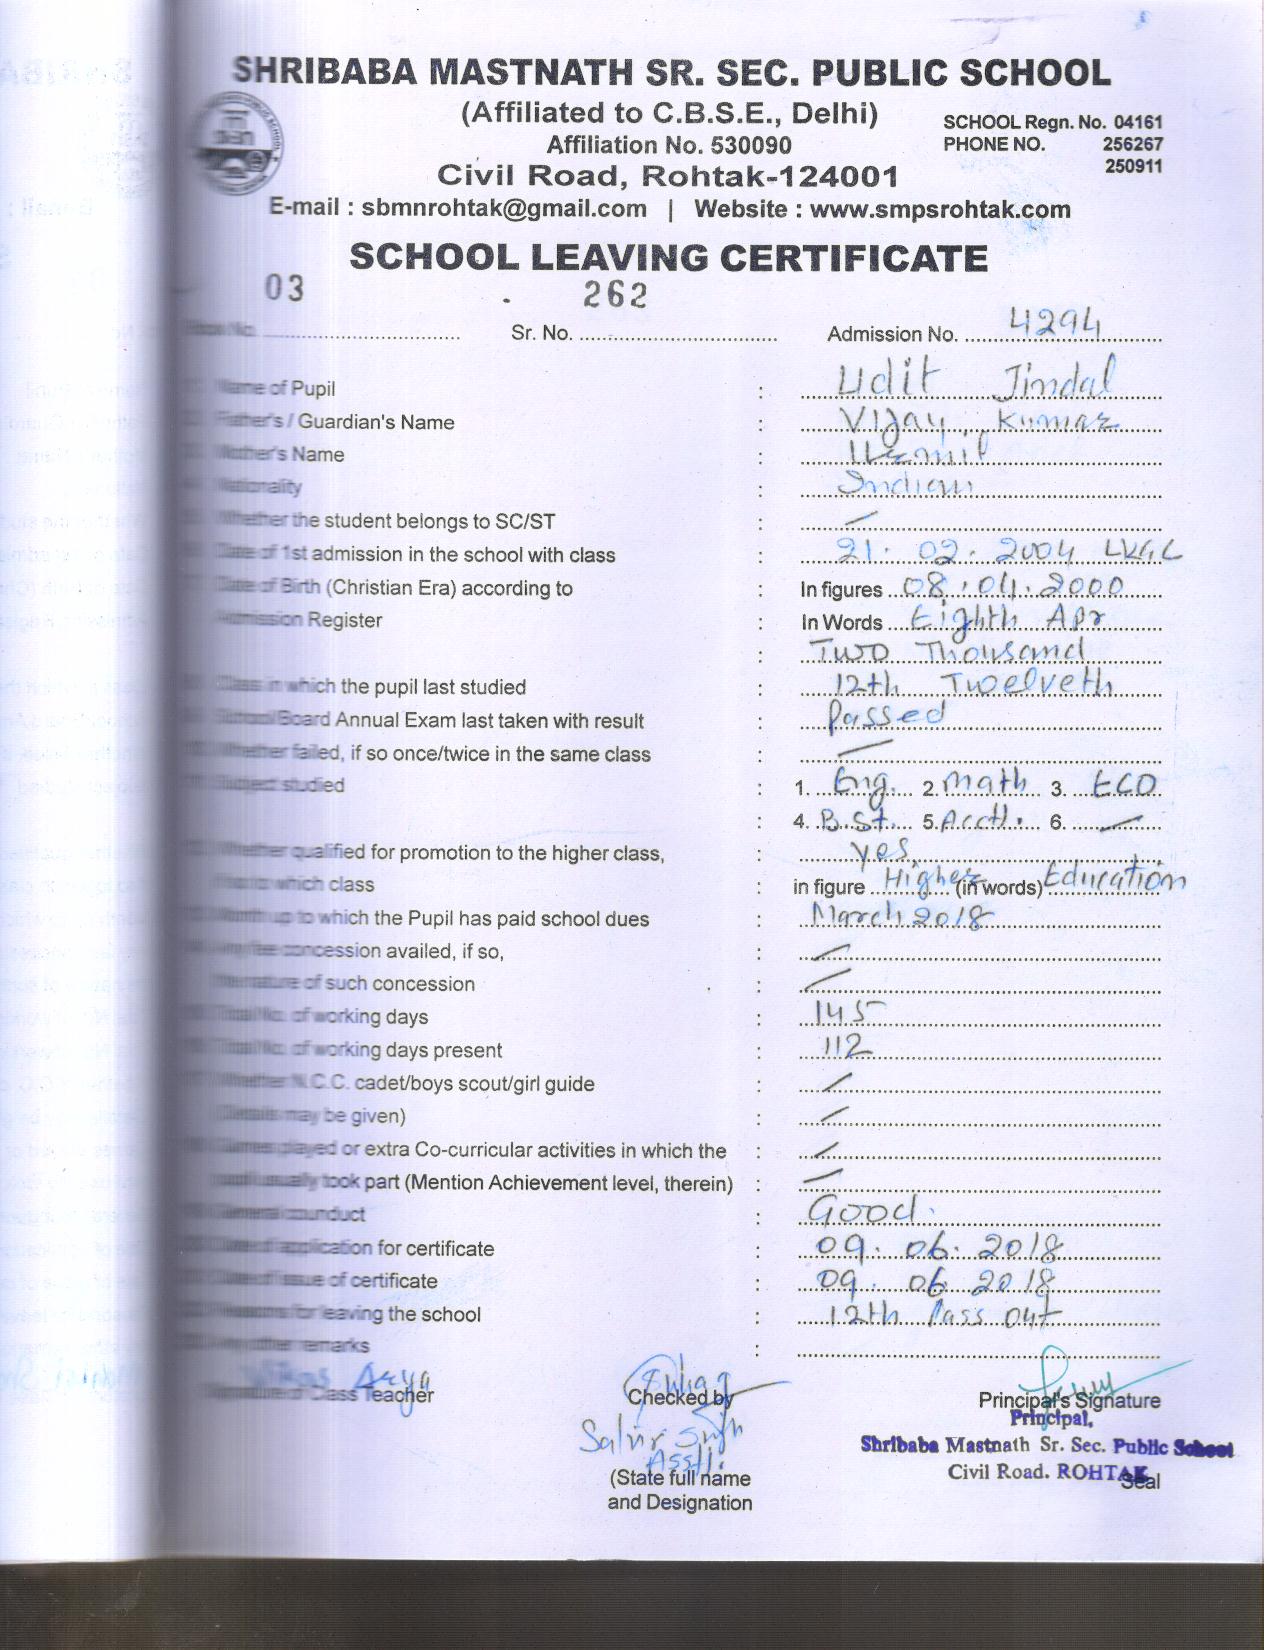 SHRIBABA MASTNATH SR. SEC. PUBLIC SCHOOL
(Affiliated to C.B.S.E., Delhi)
Affiliation No. 530090
SCHOOL Regn. No. 04161
PHONE NO. 256267
250911
Civil Road, Rohtak-124001
E-mail : sbmnrohtak@gmail.com | Website : www.smpsrohtak.com
SCHOOL LEAVING CERTIFICATE
03 262
Sr. No. Admission No. 4294
Name of Pupil : Udit Jindal
Father's / Guardian's Name : Vijay Kumar
Mother's Name :
Nationality : Indian
Whether the student belongs to SC/ST : /
Date of 1st admission in the school with class : 21. 02. 2004 LKG
Date of Birth (Christian Era) according to : In figures 08.04.2000
Admission Register : In Words Eighth Apr
: Two Thousand
Class in which the pupil last studied : 12th Twelveth
School/Board Annual Exam last taken with result : Passed
Whether failed, if so once/twice in the same class : —
Subject studied : 1. Eng. 2. Math 3. ECO
: 4. B.St. 5. Acctt. 6. —
Whether qualified for promotion to the higher class, : Yes
which class : in figure Higher (in words) Education
Month up to which the Pupil has paid school dues : March 2018
Any fee concession availed, if so, : /
the nature of such concession : /
Total No. of working days : 145
Total No. of working days present : 112
Whether N.C.C. cadet/boys scout/girl guide : /
(Details may be given) : /
Games played or extra Co-curricular activities in which the : /
pupil usually took part (Mention Achievement level, therein) : /
General counduct : Good.
Date of application for certificate : 09. 06. 2018
Date of issue of certificate : 09. 06 2018
Reasons for leaving the school : 12th Pass out
Any other remarks :
Vikas Arya
Signature of Class Teacher
Checked by
Asstt.
(State full name
and Designation
Principal's Signature
Principal,
Shribaba Mastnath Sr. Sec. Public School
Civil Road. ROHTAK
Seal